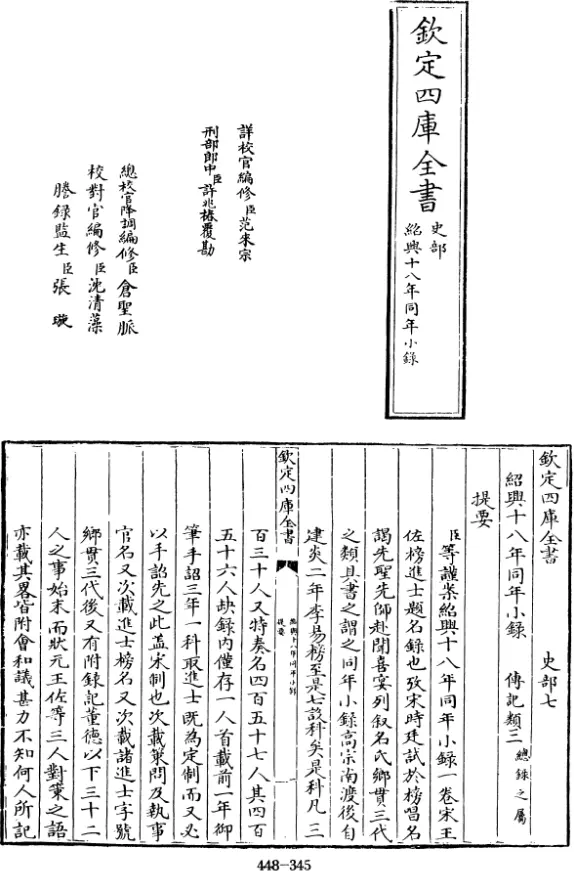 欽定四庫全書
史部
紹興十八年同年小錄
詳校官編修臣范來宗
刑部郎中臣許兆椿覆勘
總校官降調編修臣倉聖脈
校對官編修臣沈清藻
謄錄監生臣張璇
欽定四庫全書 史部七
紹興十八年同年小錄 傳記類三總錄之屬
提要
臣等謹案紹興十八年同年小錄一卷宋王
佐榜進士題名錄也攷宋時廷試於榜唱名
謁先聖先師赴聞喜宴列叙名氏鄉貫三代
之類具書之謂之同年小錄高宗南渡後自
建炎二年李易榜至是七設科矣是科凡三
欽定四庫全書
紹興十八年同年小錄
提要
百三十人又特奏名四百五十七人其四百
五十六人缺錄內僅存一人首載前一年御
筆手詔三年一科取進士既為定制而又必
以手詔先之此蓋宋制也次載策問及執事
官名又次載進士榜名又次載諸進士字號
鄉貫三代後又有附錄記董德以下三十二
人之事始末而狀元王佐等三人對策之語
亦載其畧皆附會和議甚力不知何人所記
448-345